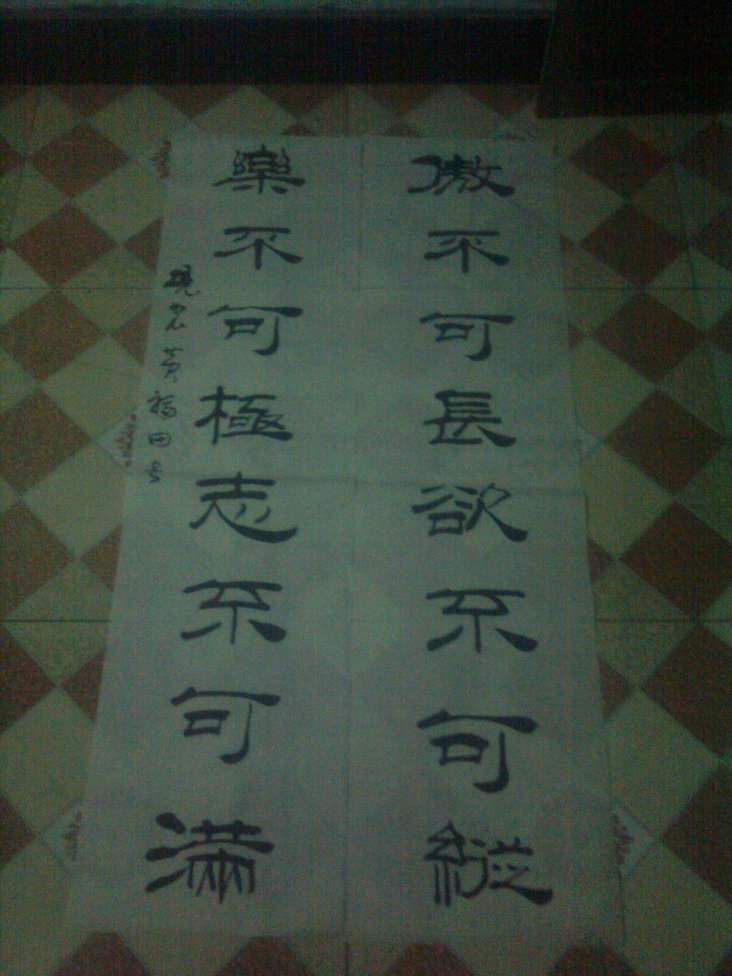 傲不可長欲不可縱
樂不可極志不可滿
黄福田书